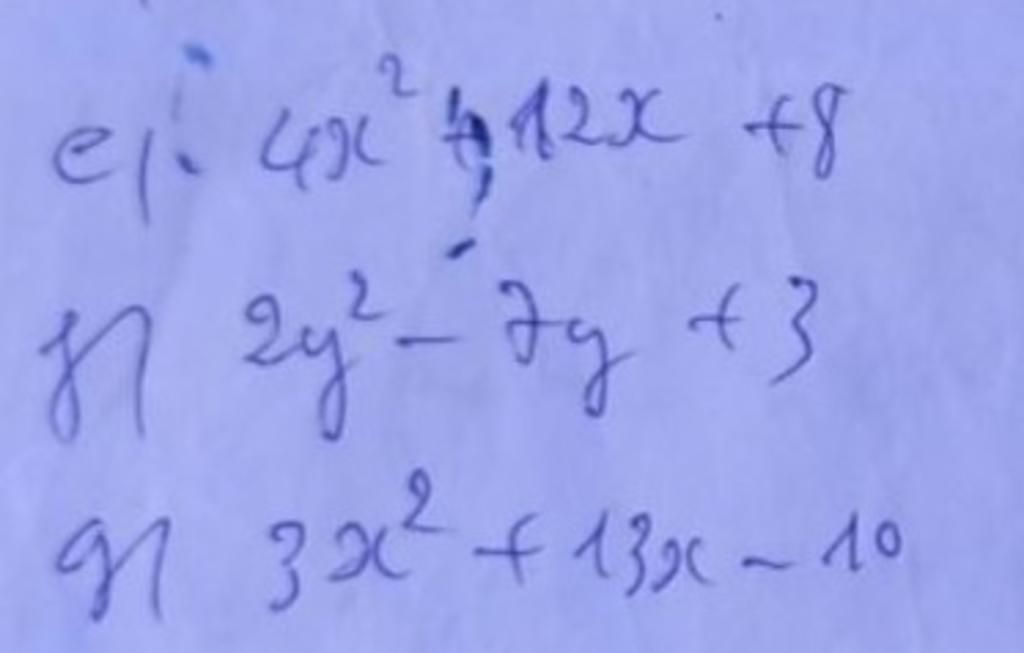 e/. 4x² + 12x + 8
f/ 2y² - 7y + 3
g/ 3x² + 13x - 10